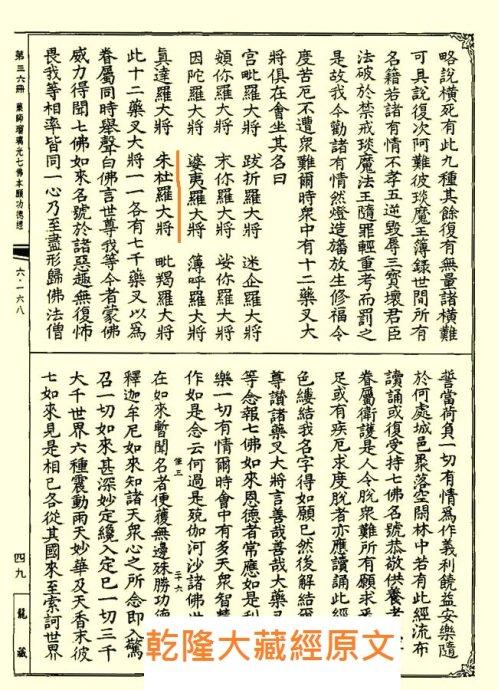 略說橫死有此九種其餘復有無量諸橫難
可具說復次阿難彼琰魔王簿錄世間所有
名籍若諸有情不孝五逆毀辱三寶壞君臣
法破於禁戒琰魔法王隨罪輕重考而罰之
是故我今勸諸有情然燈造旛放生修福令
度苦厄不遭眾難爾時眾中有十二藥叉大
將俱在會坐其名曰
宮毗羅大將 跋折羅大將 迷企羅大將
頞你羅大將 末你羅大將 娑你羅大將
因陀羅大將 婆夷羅大將 薄呼羅大將
真達羅大將 朱杜羅大將 毗羯羅大將
此十二藥叉大將一一各有七千藥叉以為
眷屬同時舉聲白佛言世尊我等今者蒙佛
威力得聞七佛如來名號於諸惡趣無復怖
畏我等相率皆同一心乃至盡形歸佛法僧
誓當荷負一切有情為作義利饒益安樂隨
於何處城邑聚落空閑林中若有此經流布
讀誦或復受持七佛名號恭敬供養者
眷屬衛護是人令脫眾難所有願求
足或有疾厄求度脫者亦應讀誦此經
色縷結我名字得如願已然後解結
尊讚諸藥叉大將言善哉善哉大藥叉
等念報七佛如來恩德者常應如是利
樂一切有情爾時會中有多天眾智慧
作如是念云何過是殑伽河沙諸佛世
在如來暫聞名者便獲無邊殊勝功德
釋迦牟尼如來知諸天眾心之所念即入警
召一切如來甚深妙定纔入定已一切三千
大千世界六種震動雨天妙華及天香末彼
七如來見是相已各從其國來至索訶世界
第三六冊 藥師瑠璃光七佛本願功德經
六·一六八
四九
龍藏
乾隆大藏經原文